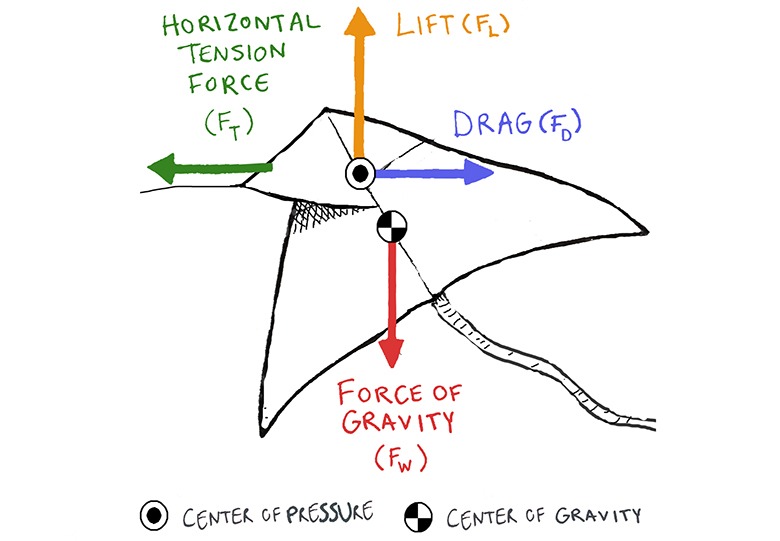 HORIZONTAL
TENSION
FORCE
(F_T)
LIFT (F_L)
DRAG (F_D)
FORCE OF
GRAVITY
(F_W)
CENTER OF PRESSURE
CENTER OF GRAVITY